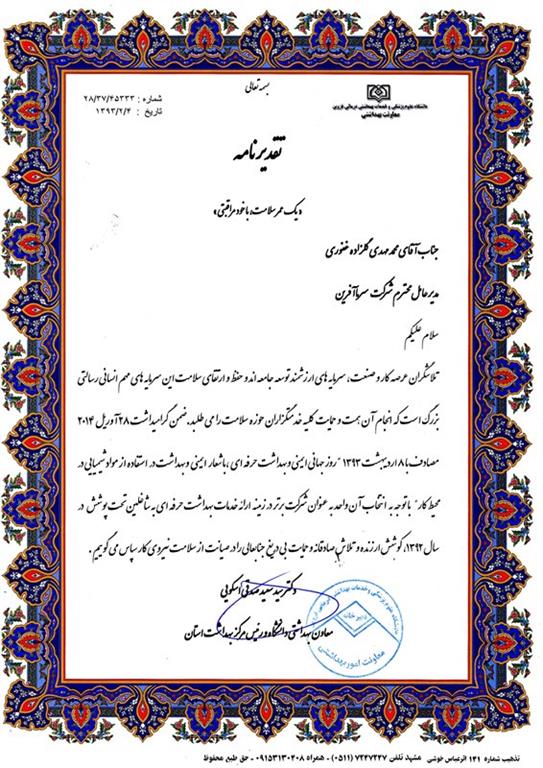 بسمه تعالی
دانشگاه علوم پزشکی و خدمات بهداشتی درمانی قزوین
معاونت بهداشتی
شماره : ۲۸/۳۷/۴۵۳۳۳
تاریخ : ۱۳۹۳/۲/۴
تقدیرنامه
«یک عمر سلامت، با خود مراقبتی»
جناب آقای محمد مهدی گلزاده غفوری
مدیرعامل محترم شرکت سرماآفرین
سلام علیکم
تلاشگران عرصه کار و صنعت، سرمایه های ارزشمند توسعه جامعه اند و حفظ و ارتقای سلامت این سرمایه های مهم انسانی رسالتی
بزرگ است که انجام آن همت و حمایت کلیه خدمتگزاران حوزه سلامت را می طلبد. ضمن گرامیداشت ۲۸ آوریل ۲۰۱۴
مصادف با ۸ اردیبهشت ۱۳۹۳ "روز جهانی ایمنی و بهداشت حرفه ای، با شعار ایمنی و بهداشت در استفاده از مواد شیمیایی در
محیط کار" با توجه به انتخاب آن واحد به عنوان شرکت برتر در زمینه ارائه خدمات بهداشت حرفه ای به شاغلین تحت پوشش در
سال ۱۳۹۲، کوشش ارزنده و تلاش صادقانه و حمایت بی دریغ جنابعالی را در صیانت از سلامت نیروی کار سپاس می گوییم.
دکتر سید سعید صدقی اسکویی
معاون بهداشتی دانشگاه و رئیس مرکز بهداشت استان
دبیرخانه
معاونت امور بهداشتی
تذهیب شماره ۱۴۱ اثر عباس خوشی مشهد تلفن ۷۲۴۷۲۴۷ (۰۵۱۱) - همراه ۰۹۱۵۳۱۳۰۴۰۸ - حق طبع محفوظ